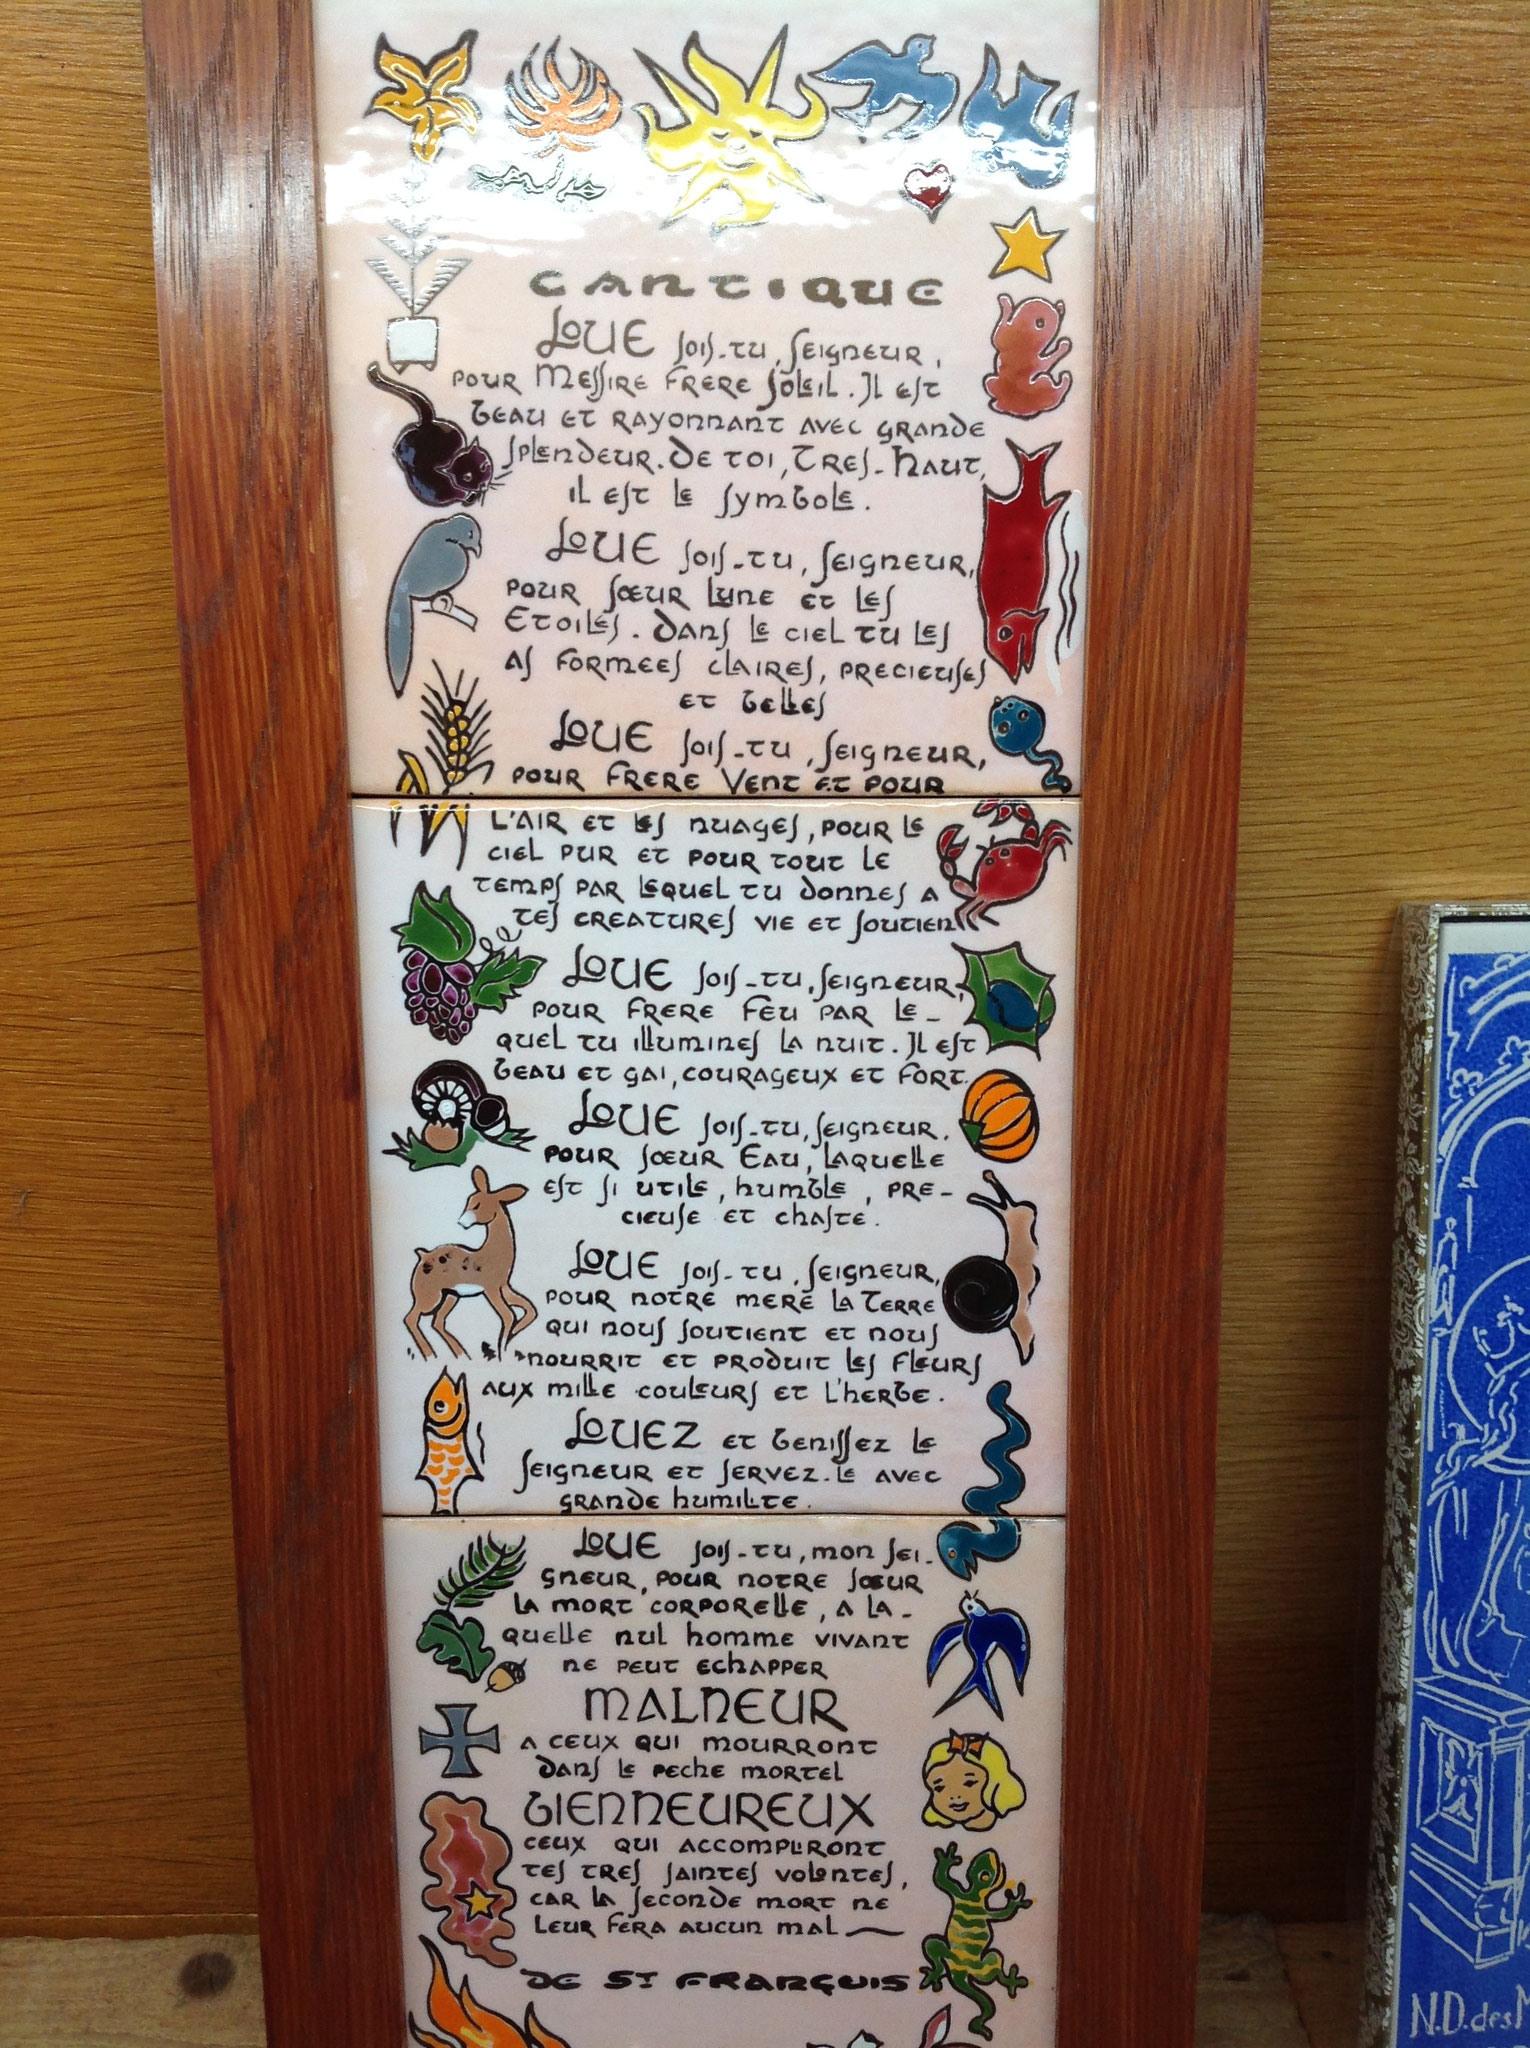 CANTIQUE
LOUE sois-tu, Seigneur,
pour Messire frere Soleil. Il est
beau et rayonnant avec grande
splendeur. De toi, Tres-Haut,
il est le symbole.
LOUE sois-tu, Seigneur,
pour sœur Lune et les
Etoiles. Dans le ciel tu les
as formees claires, precieuses
et belles
LOUE sois-tu, Seigneur,
pour frere Vent et pour
l'air et les nuages, pour le
ciel pur et pour tout le
temps par lequel tu donnes a
tes creatures vie et soutien
LOUE sois-tu, Seigneur,
pour frere Feu par le-
quel tu illumines la nuit. Il est
beau et gai, courageux et fort.
LOUE sois-tu, Seigneur,
pour sœur Eau, laquelle
est si utile, humble, pre-
cieuse et chaste.
LOUE sois-tu, Seigneur,
pour notre mere la Terre
qui nous soutient et nous
nourrit et produit les fleurs
aux mille couleurs et l'herbe.
LOUEZ et benissez le
Seigneur et servez-le avec
grande humilite.
LOUE sois-tu, mon Sei-
gneur, pour notre sœur
la mort corporelle, a la-
quelle nul homme vivant
ne peut echapper
MALHEUR
a ceux qui mourront
dans le peche mortel
BIENHEUREUX
ceux qui accompliront
tes tres saintes volontes,
car la seconde mort ne
leur fera aucun mal
DE ST FRANÇUIS
N.D. des M